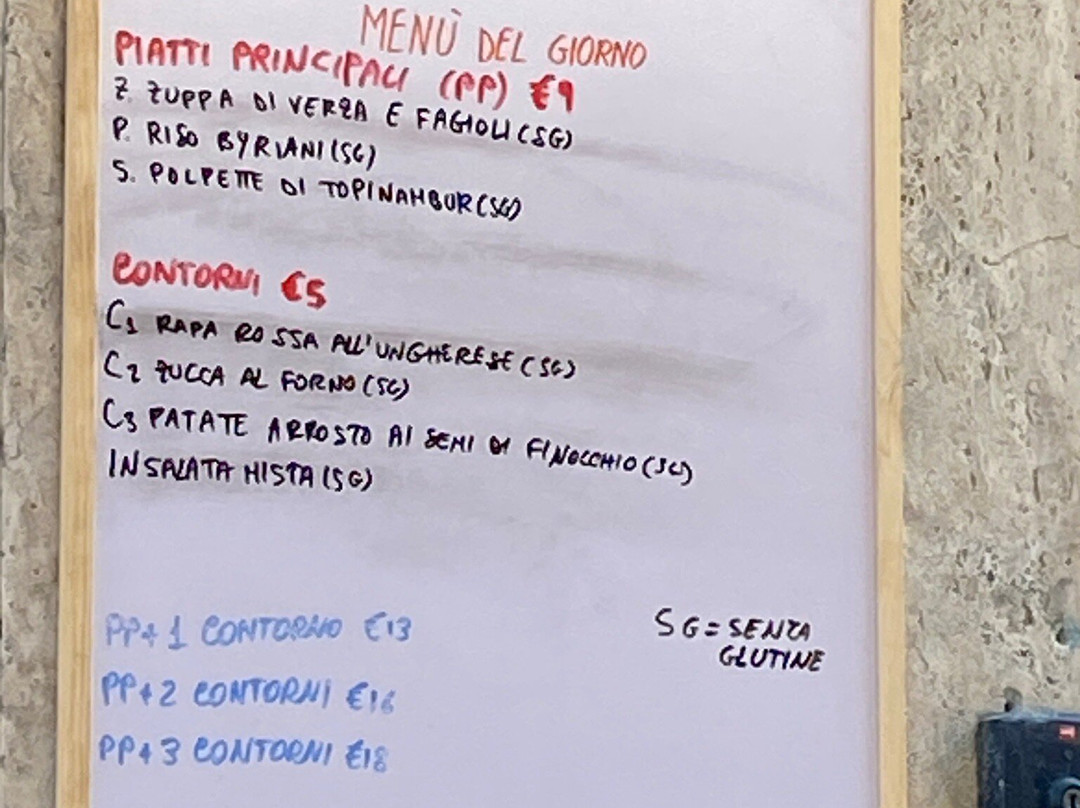 MENÙ DEL GIORNO
PIATTI PRINCIPALI (PP) €9
Z. ZUPPA DI VERZA E FAGIOLI (SG)
P. RISO BYRIANI (SG)
S. POLPETTE DI TOPINAMBUR (SG)
CONTORNI €5
C1 RAPA ROSSA ALL'UNGHERESE (SG)
C2 ZUCCA AL FORNO (SG)
C3 PATATE ARROSTO AI SEMI DI FINOCCHIO (SG)
INSALATA MISTA (SG)
PP+1 CONTORNO €13
PP+2 CONTORNI €16
PP+3 CONTORNI €18
SG = SENZA
GLUTINE